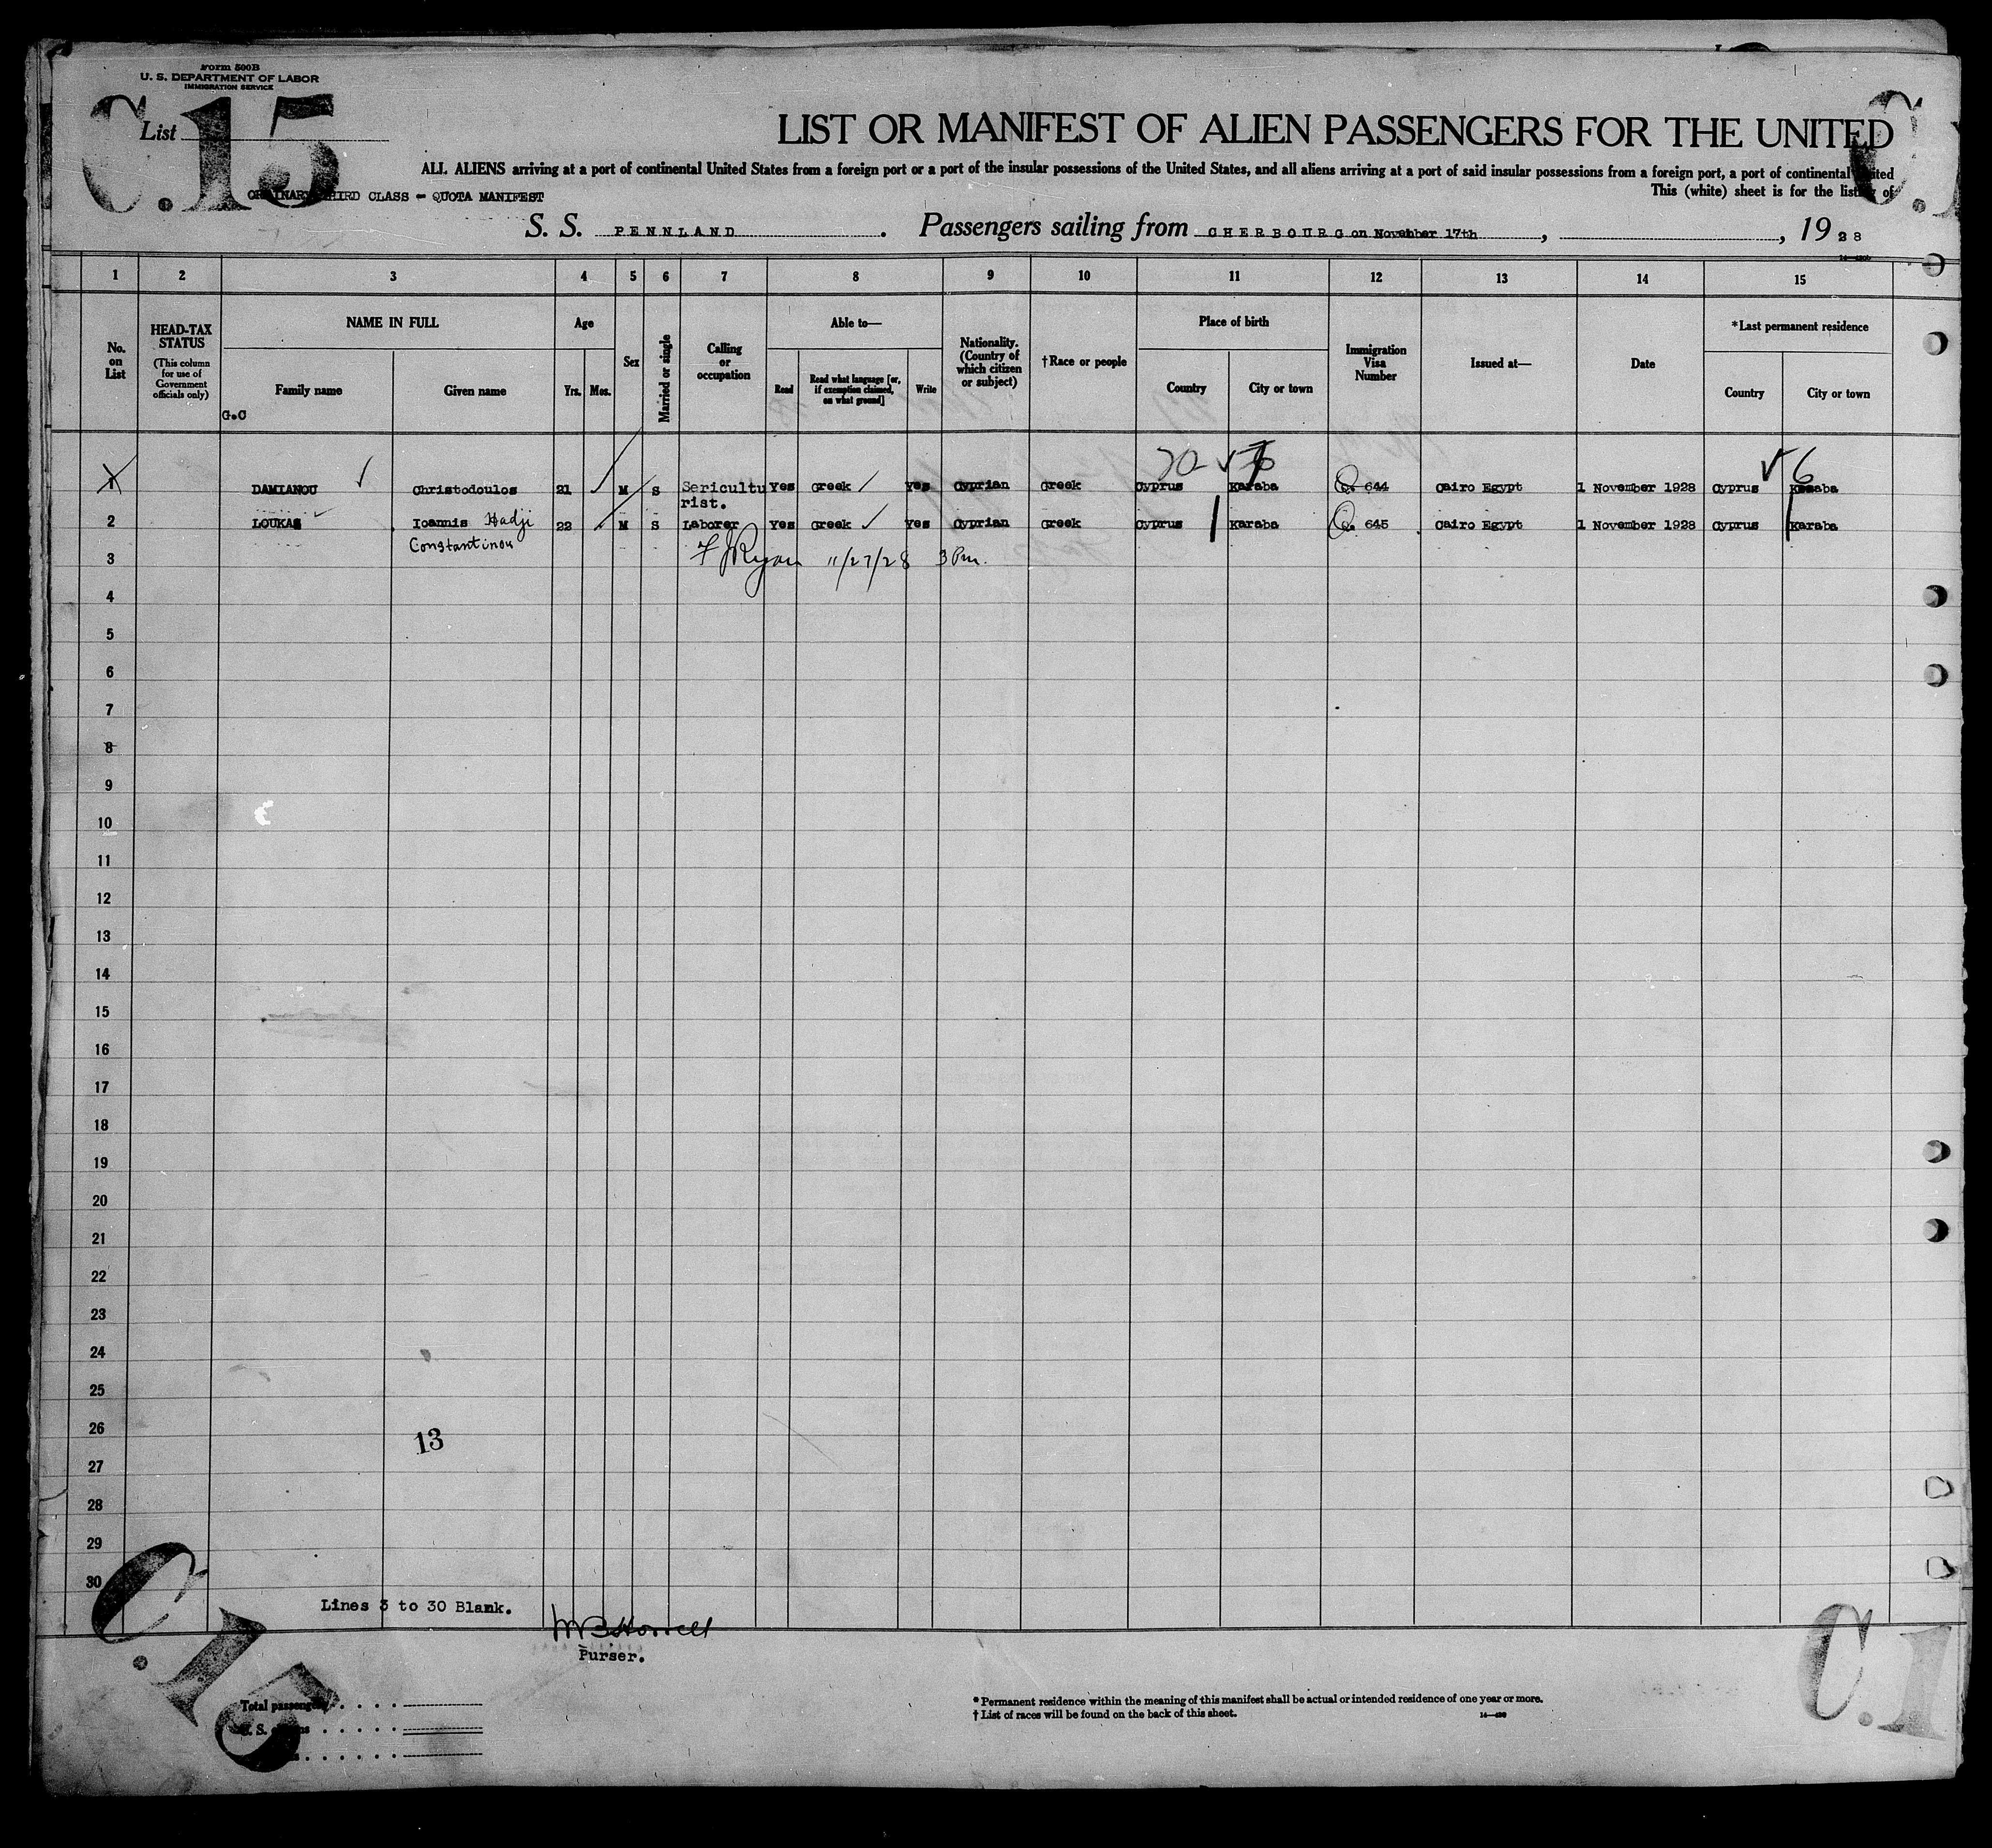 Form 500B
U. S. DEPARTMENT OF LABOR
IMMIGRATION SERVICE
C.15
List
LIST OR MANIFEST OF ALIEN PASSENGERS FOR THE UNITED
ALL ALIENS arriving at a port of continental United States from a foreign port or a port of the insular possessions of the United States, and all aliens arriving at a port of said insular possessions from a foreign port, a port of continental United
ORDINARY THIRD CLASS - QUOTA MANIFEST
This (white) sheet is for the listing of
S. S. PENNLAND. Passengers sailing from CHERBOURG on November 17th, , 19 28
1 2 3 4 5 6 7 8 9 10 11 12 13 14 15
No. on List
HEAD-TAX STATUS
(This column for use of Government officials only)
NAME IN FULL
Family name
Given name
G.C
Age
Yrs. Mos.
Sex
Married or single
Calling or occupation
Able to—
Read
Read what language [or, if exemption claimed, on what ground]
Write
Nationality. (Country of which citizen or subject)
†Race or people
Place of birth
Country
City or town
Immigration Visa Number
Issued at—
Date
*Last permanent residence
Country
City or town
1 DAMIANOU Christodoulos 21 M S Sericultu Yes Greek Yes Cyprian Greek Cyprus Karaba Q. 644 Cairo Egypt 1 November 1928 Cyprus Karaba
rist.
2 LOUKAS Ioannis Hadji 22 M S Laborer Yes Greek Yes Cyprian Greek Cyprus Karaba Q. 645 Cairo Egypt 1 November 1928 Cyprus Karaba
Constantinou
3 F J Ryan 11/27/28 3 Pm.
4
5
6
7
8
9
10
11
12
13
14
15
16
17
18
19
20
21
22
23
24
25
26
13
27
28
29
30
Lines 3 to 30 Blank.
Purser.
C.15
C.1
Total passengers
U. S. citizens
* Permanent residence within the meaning of this manifest shall be actual or intended residence of one year or more.
† List of races will be found on the back of this sheet.